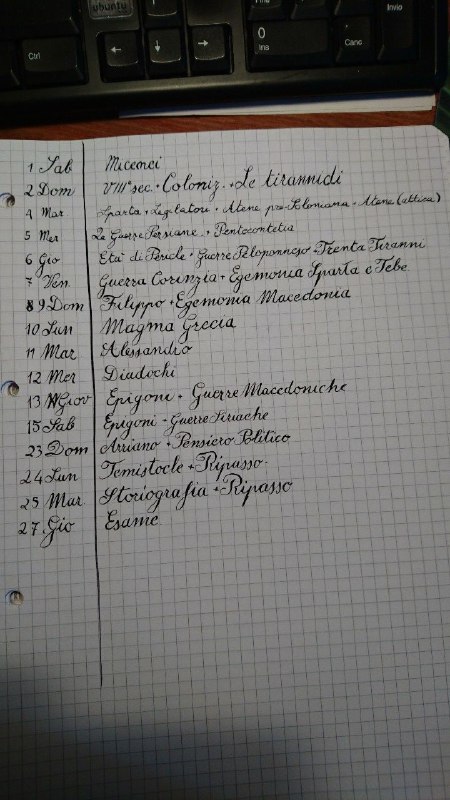 Fine
Invio
ubuntu
Ctrl
←
↓
→
0
Ins
Canc
1 Sab Micenei
2 Dom VIII° sec. + Coloniz. + Le tirannidi
4 Mar Sparta + Legislatori + Atene pre-Soloniana + Atene (attica)
5 Mer Le Guerre Persiane + Pentecontetia
6 Gio Età di Pericle + Guerre Peloponneso + Trenta Tiranni
7 Ven Guerra Corinzia + Egemonia Sparta e Tebe
9 Dom Filippo + Egemonia Macedonia
10 Lun Magma Grecia
11 Mar Alessandro
12 Mer Diadochi
13 Giov Epigoni + Guerre Macedoniche
15 Sab Epigoni + Guerre Siriache
23 Dom Arriano + Pensiero Politico
24 Lun Temistocle + Ripasso
25 Mar Storiografia + Ripasso
27 Gio Esame